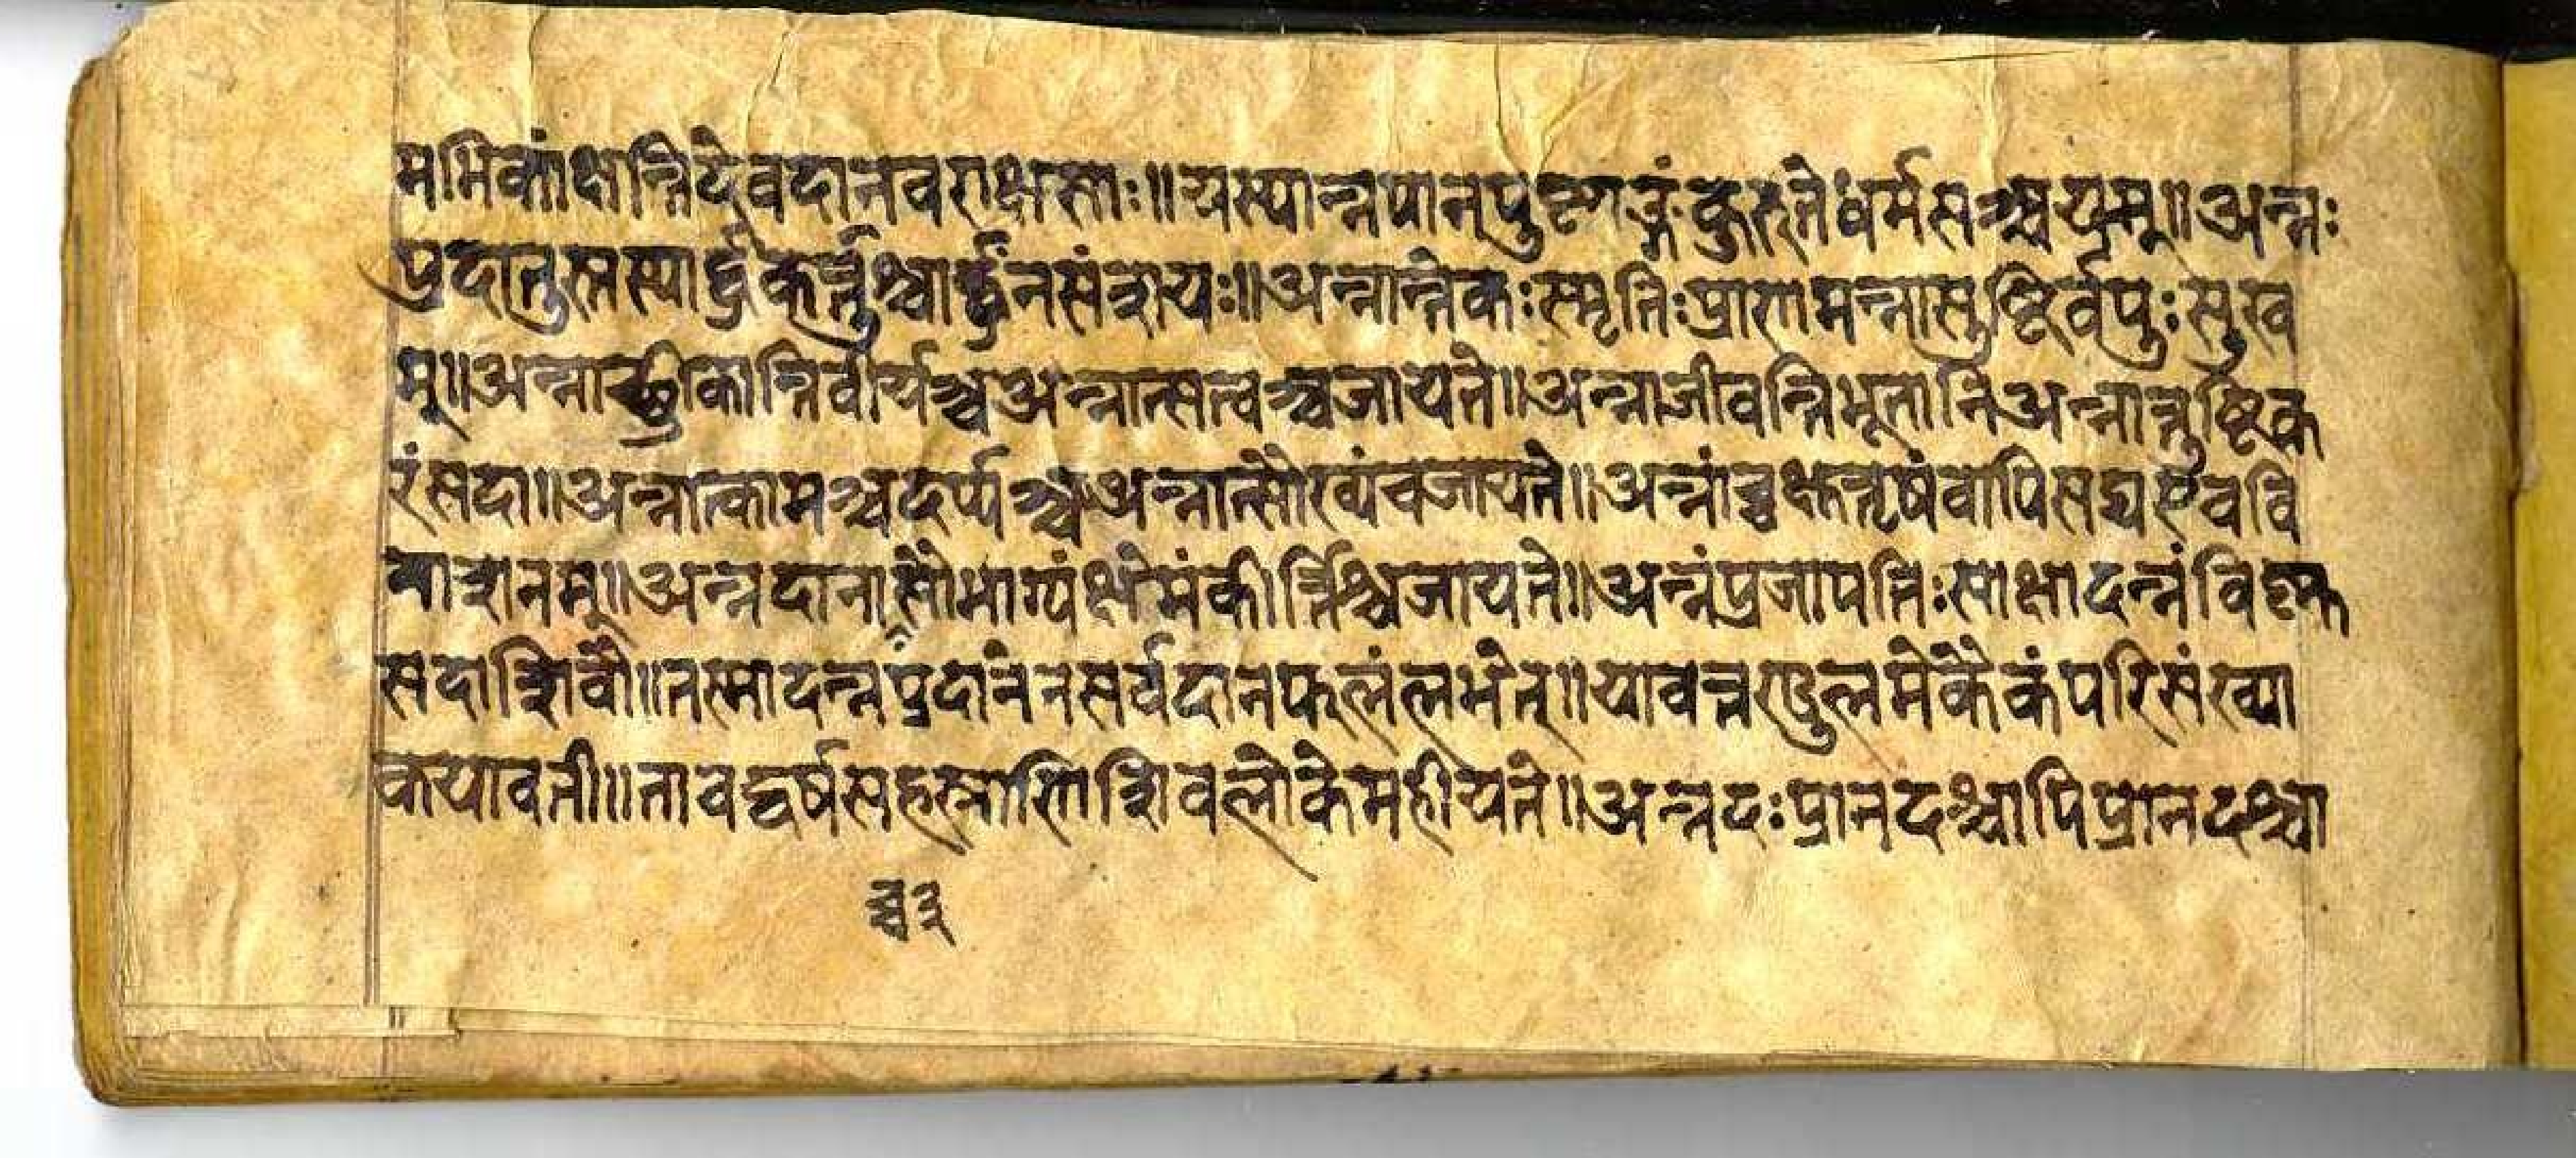 मभिकांक्षन्तिदेवदानवराक्षसाः॥यस्यान्नपानपुष्टाङ्गंकुरुतेधर्मसञ्चयम्॥अन्नः
प्रदातुस्तस्यार्द्धकर्त्तुश्चार्द्धंनसंशयः॥अन्नान्तेकःस्मृतिःप्राणमन्नात्पुष्टिर्वपुःसुख
म्॥अन्नाच्छ्रीकान्तिवीर्यञ्चअन्नात्सत्वञ्चजायते॥अन्नाजीवन्तिभूतानिअन्नान्तुष्टिक
रंसदा॥अन्नात्कामञ्चदर्प्पञ्चअन्नात्सौख्यंचजायते॥अन्नांवापिसद्यएववि
नाशनम्॥अन्नदानात्सौभाग्यंक्षेमंकीर्त्तिश्चजायते॥अन्नंप्रजापतिःसाक्षादन्नंविष्णु
सदाशिवौ॥तस्मादन्नप्रदानेनसर्वदानफलंलभेत्॥यावत्तण्डुलमेकैकंपरिसंख्या
कयावती॥तावद्वर्षसहस्राणिशिवलोकेमहीयते॥अन्नदःप्रानदश्चापिप्रानदश्चा